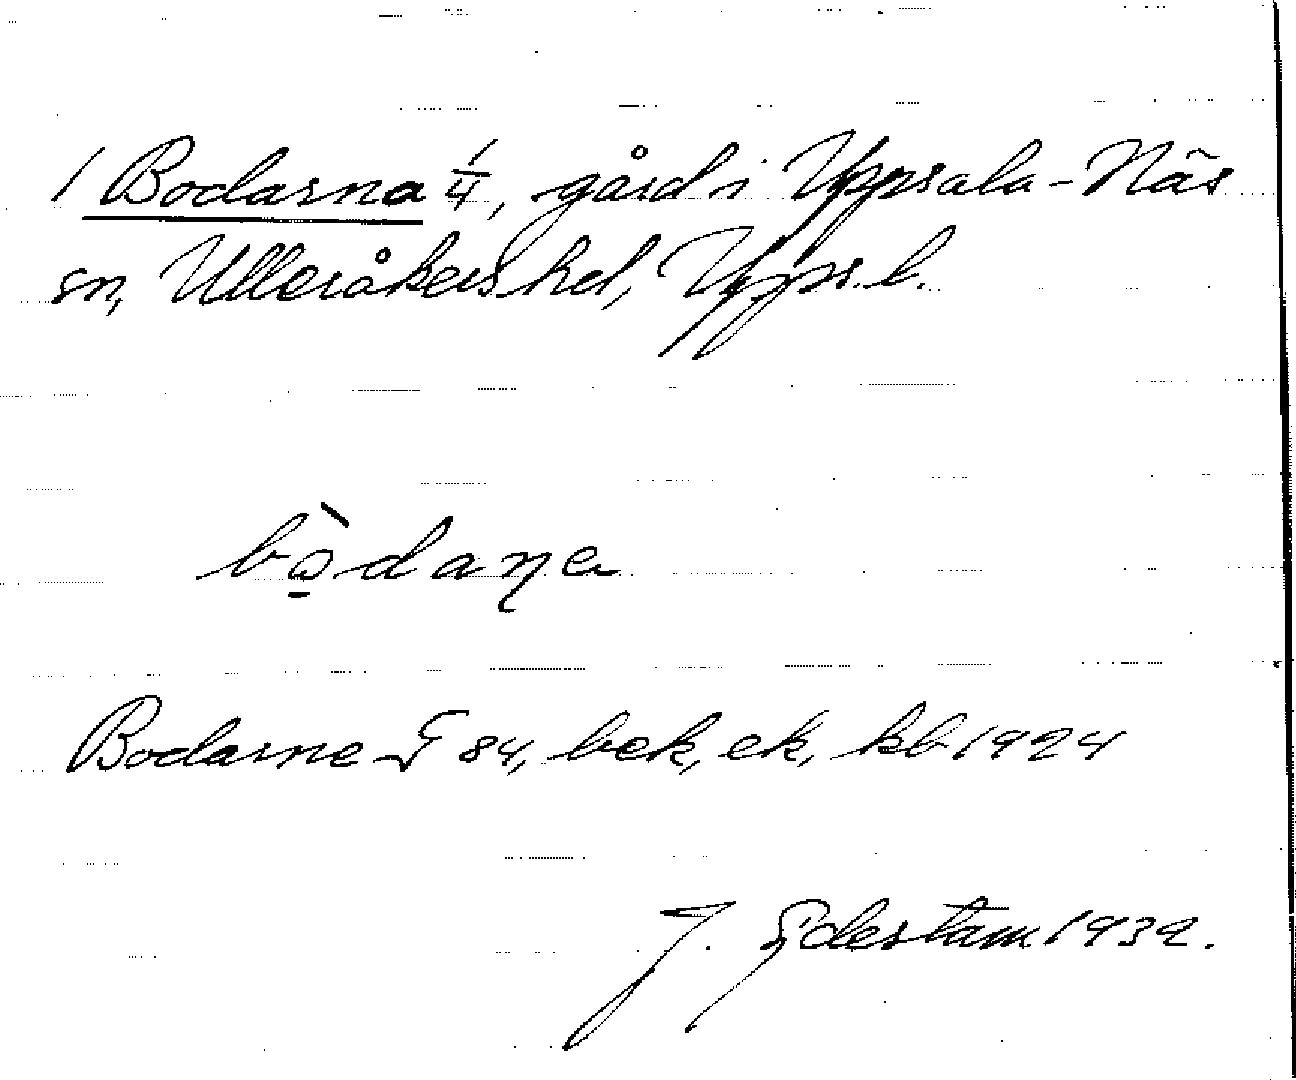 1 Bodarna 1/4, gård i Uppsala-Näs
sn, Ulleråkers hd, Upps. l.
bò̱daɳa
Bodarne G 84, bek, ek, kb 1924
J. Edestam 1932.